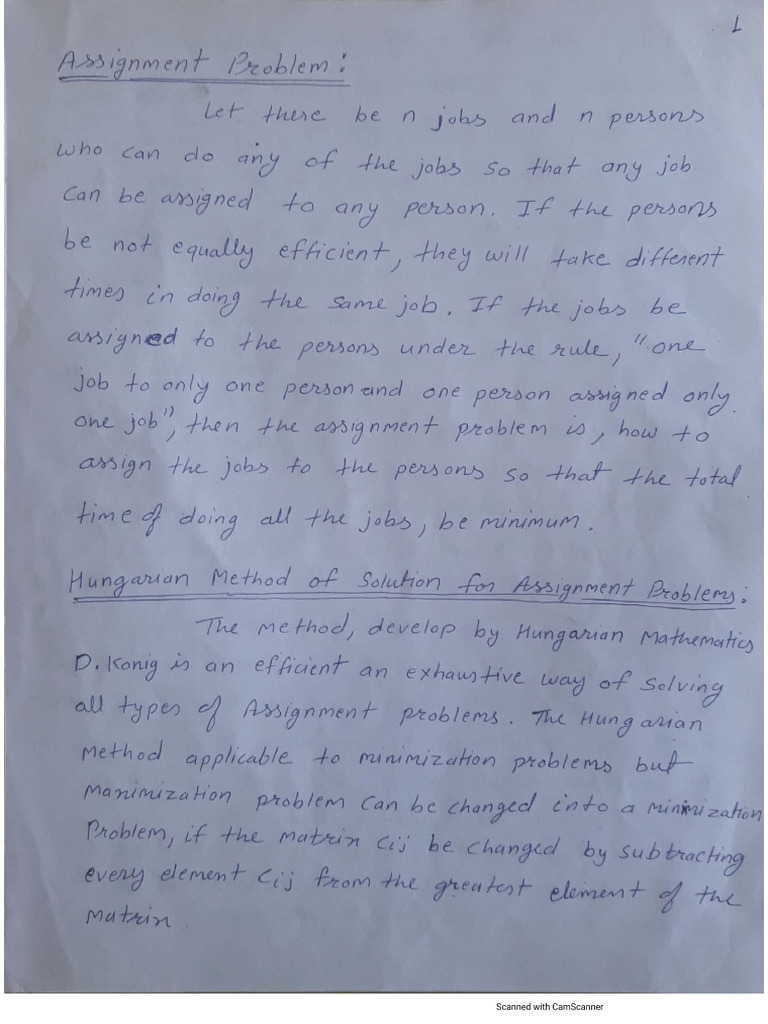 1
Assignment Problem:
Let there be n jobs and n persons
who can do any of the jobs so that any job
can be assigned to any person. If the persons
be not equally efficient, they will take different
times in doing the same job. If the jobs be
assigned to the persons under the rule, "one
job to only one person and one person assigned only
one job", then the assignment problem is, how to
assign the jobs to the persons so that the total
time of doing all the jobs, be minimum.
Hungarian Method of Solution for Assignment Problems:
The method, develop by Hungarian Mathematics
D. Konig is an efficient an exhaustive way of solving
all types of Assignment problems. The Hungarian
Method applicable to minimization problems but
Maximization problem can be changed into a minimization
Problem, if the matrix Cij be changed by subtracting
every element Cij from the greatest element of the
matrix.
Scanned with CamScanner